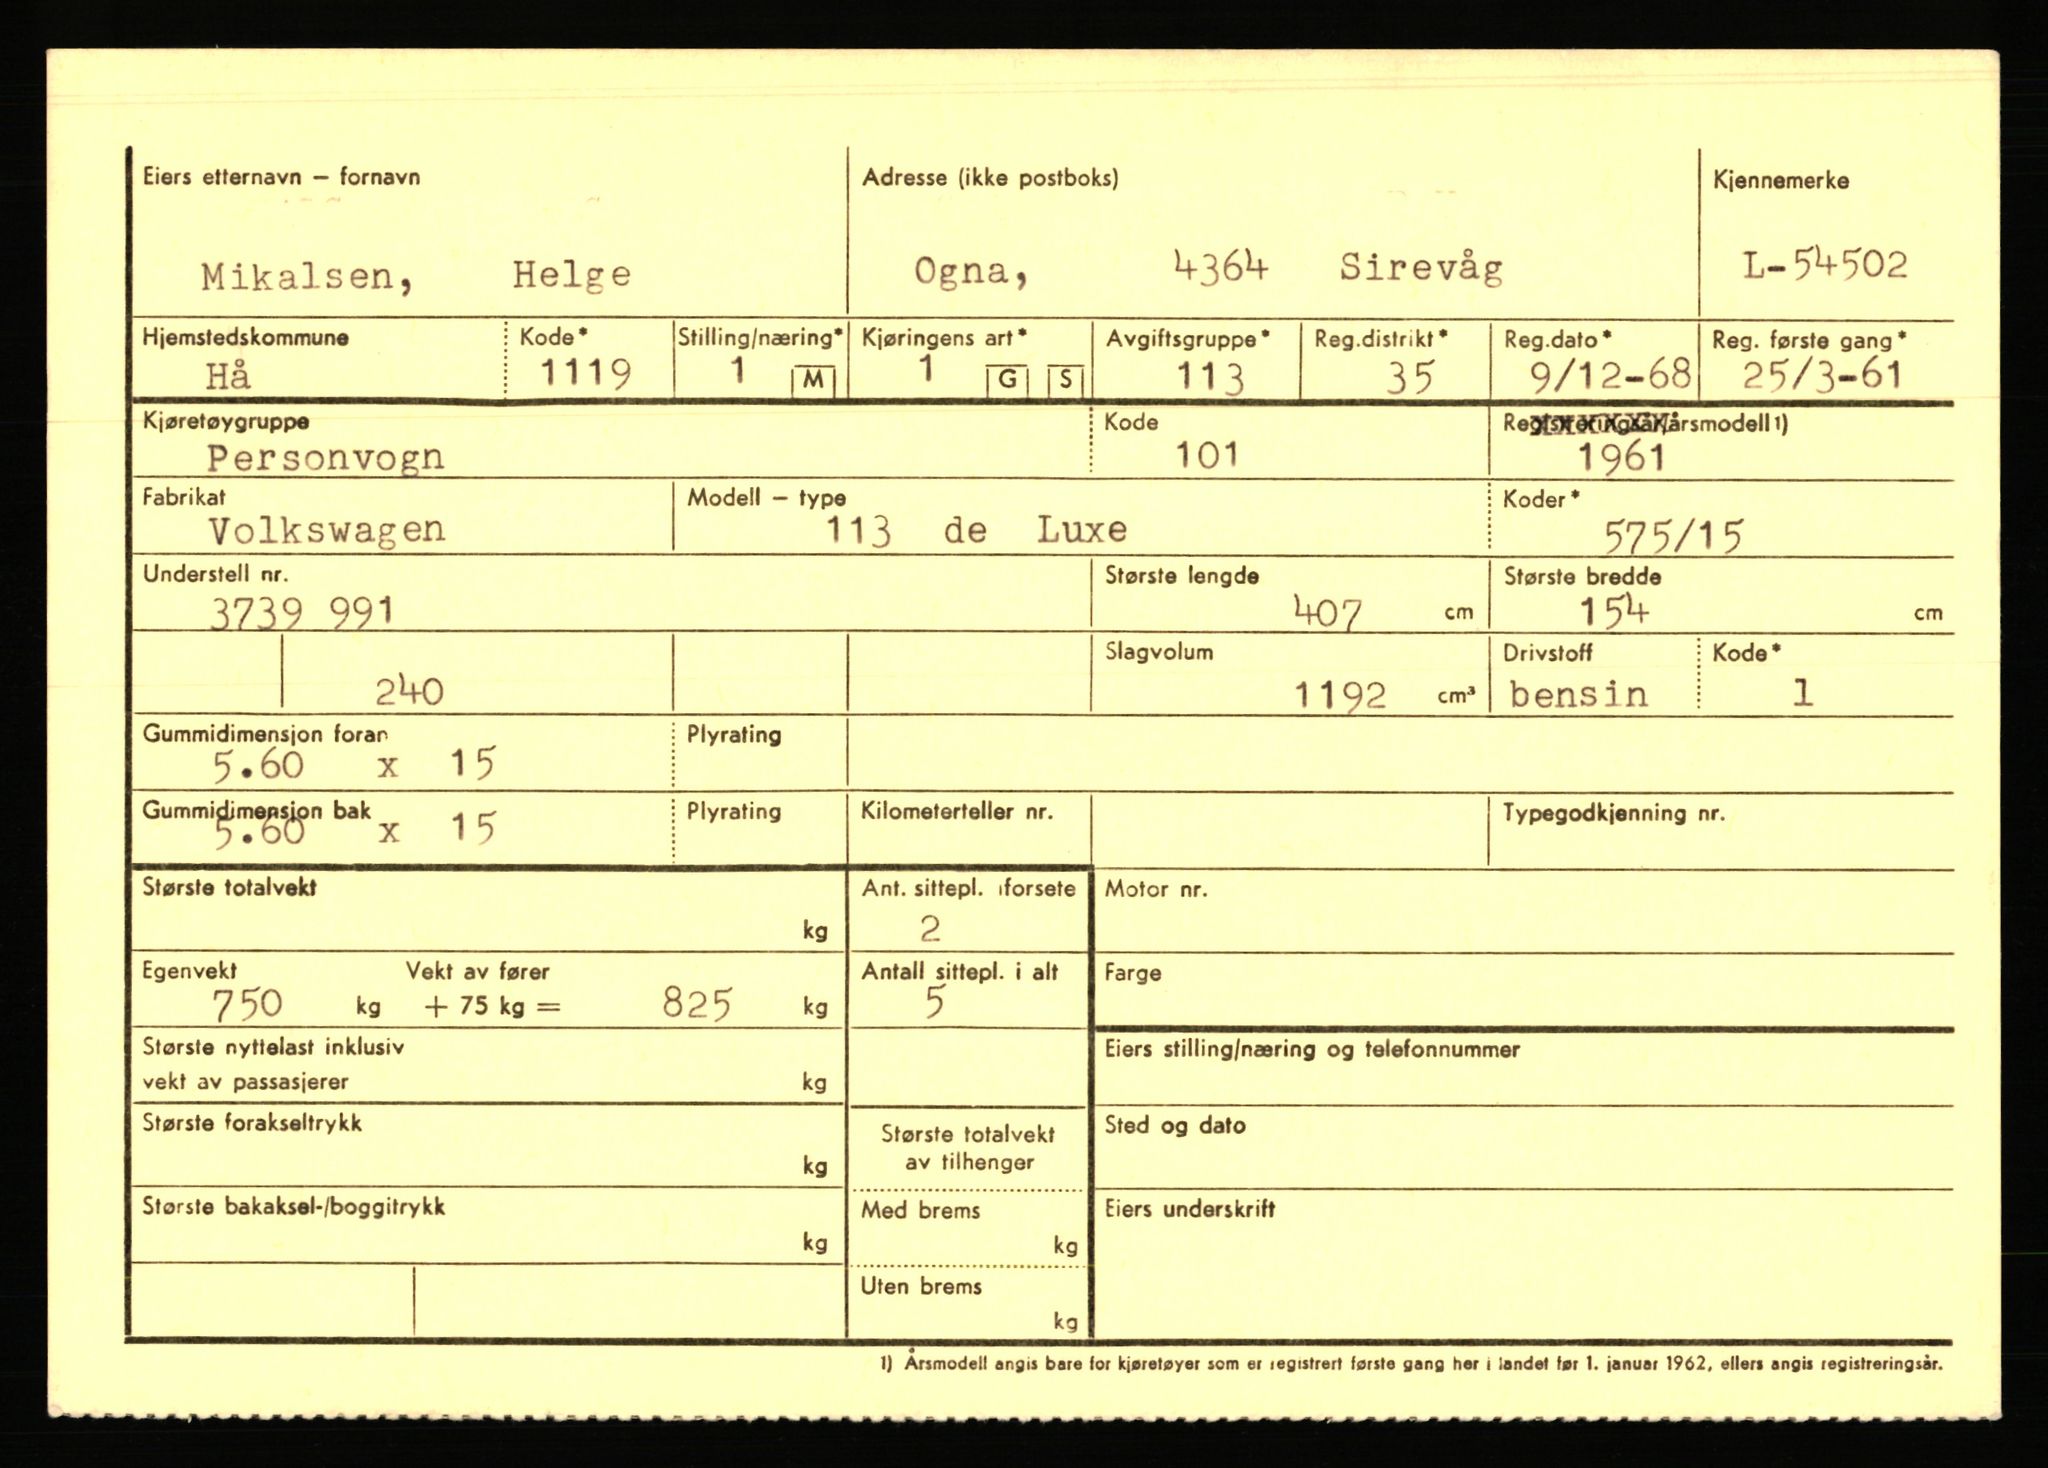 Eiers etternavn – fornavn Adresse (ikke postboks) Kjennemerke
Mikalsen, Helge Ogna, 4364 Sirevåg L-54502
Hjemstedskommune Kode* Stilling/næring* Kjøringens art* Avgiftsgruppe* Reg.distrikt* Reg.dato* Reg. første gang*
Hå 1119 1 M 1 G S 113 35 9/12-68 25/3-61
Kjøretøygruppe Kode Registreringsår/årsmodell 1)
Personvogn 101 1961
Fabrikat Modell – type Koder*
Volkswagen 113 de Luxe 575/15
Understell nr. Største lengde Største bredde
3739 991 407 cm 154 cm
Slagvolum Drivstoff Kode*
240 1192 cm³ bensin 1
Gummidimensjon foran Plyrating
5.60 x 15
Gummidimensjon bak Plyrating Kilometerteller nr. Typegodkjenning nr.
5.60 x 15
Største totalvekt Ant. sittepl. i forsete Motor nr.
kg 2
Egenvekt Vekt av fører Antall sittepl. i alt Farge
750 kg + 75 kg = 825 kg 5
Største nyttelast inklusiv Eiers stilling/næring og telefonnummer
vekt av passasjerer kg
Største forakseltrykk Største totalvekt Sted og dato
kg av tilhenger
Største bakaksel-/boggitrykk Med brems Eiers underskrift
kg kg
Uten brems
kg
1) Årsmodell angis bare for kjøretøyer som er registrert første gang her i landet før 1. januar 1962, ellers angis registreringsår.